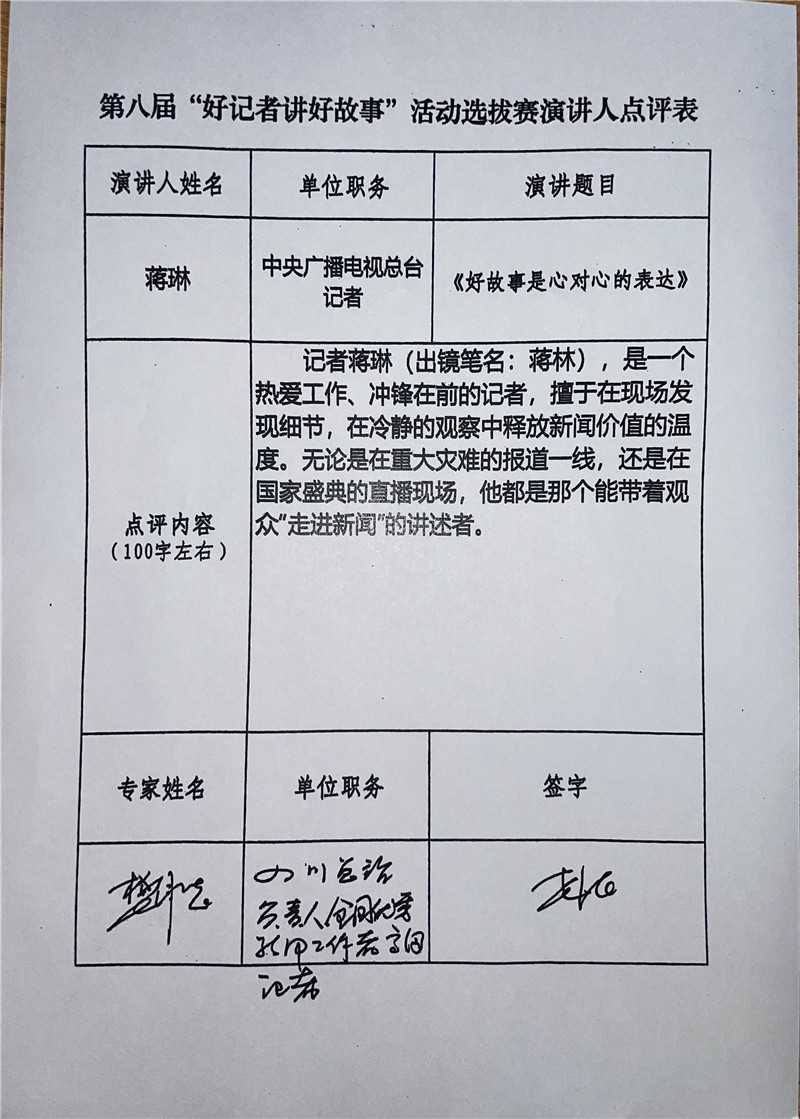 第八届“好记者讲好故事”活动选拔赛演讲人点评表
演讲人姓名
单位职务
演讲题目
蒋琳
中央广播电视总台
记者
《好故事是心对心的表达》
点评内容
（100字左右）
记者蒋琳（出镜笔名：蒋林），是一个
热爱工作、冲锋在前的记者，擅于在现场发
现细节，在冷静的观察中释放新闻价值的温
度。无论是在重大灾难的报道一线，还是在
国家盛典的直播现场，他都是那个能带着观
众“走进新闻”的讲述者。
专家姓名
单位职务
签字
四川总站
负责人全国优秀
新闻工作者高级
记者